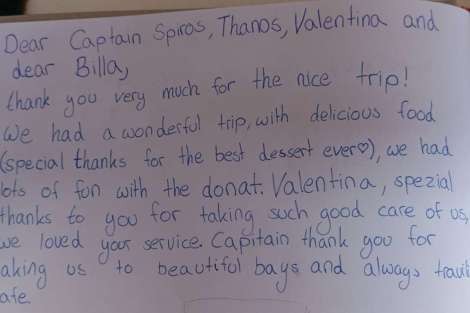 Dear Captain Spiros, Thanos, Valentina and
dear Billa,
thank you very much for the nice trip!
We had a wonderful trip, with delicious food
(special thanks for the best dessert ever♡), we had
lots of fun with the donat. Valentina, spezial
thanks to you for taking such good care of us,
we loved your service. Capitain thank you for
aking us to beautiful bays and always
afe.